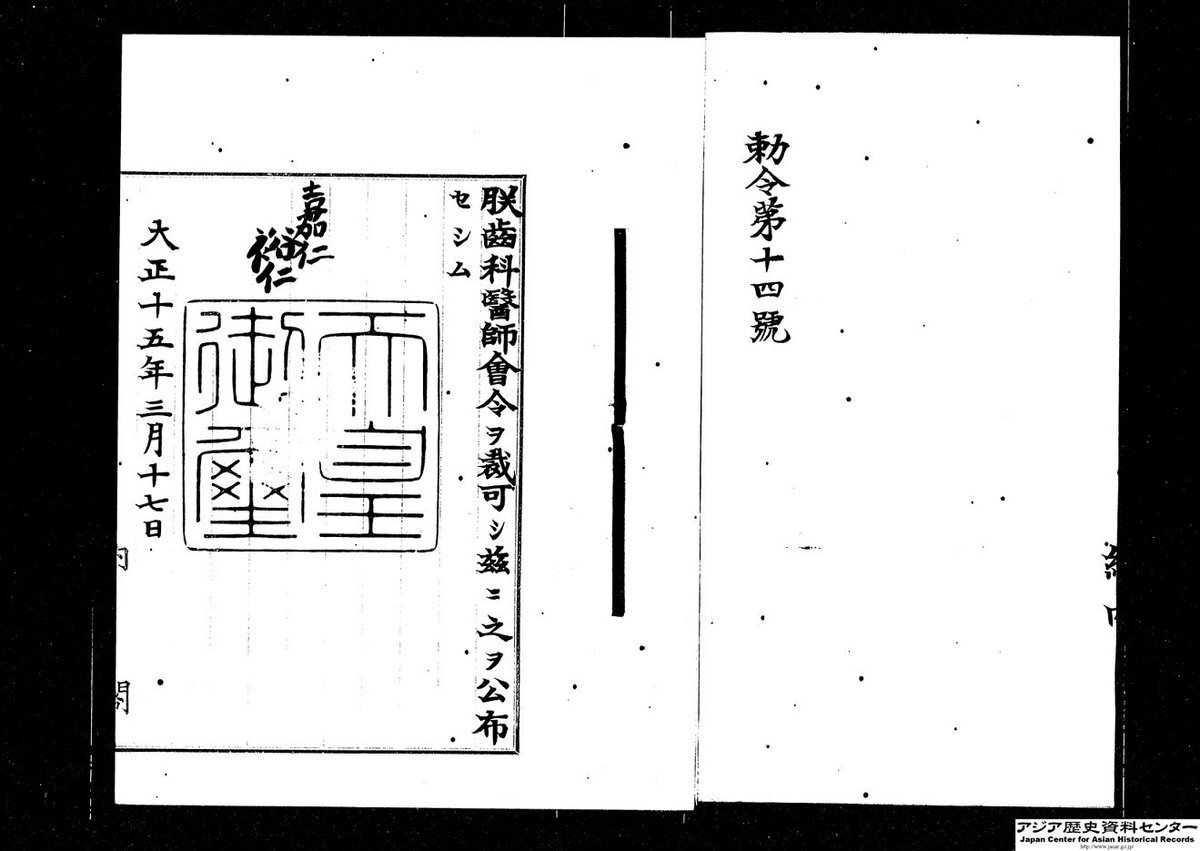 勅令第十四號
朕齒科醫師會令ヲ裁可シ茲ニ之ヲ公布
セシム
嘉仁
裕仁
天皇
御璽
大正十五年三月十七日
内閣
アジア歴史資料センター
Japan Center for Asian Historical Records
http://www.jacar.go.jp/